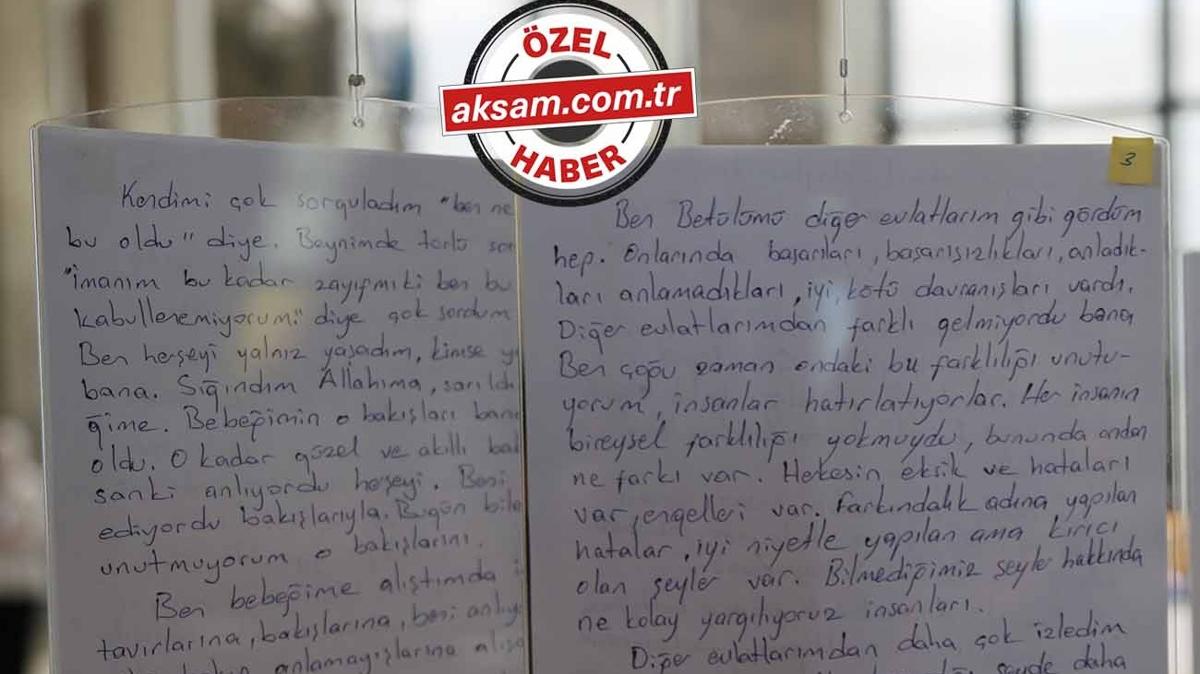 ÖZEL
aksam.com.tr
HABER
Kendimi çok sorguladım "ben ne
bu oldu" diye. Beynimde türlü sor
"İmanım bu kadar zayıfmıki ben bu
kabullenemiyorum." diye çok sordum
Ben herşeyi yalnız yaşadım, kimse
bana. Sığındım Allahıma, sarıldı
ğime. Bebeğimin o bakışları bana
oldu. O kadar güzel ve akıllı bak
sanki anlıyordu herşeyi. Beni
ediyordu bakışlarıyla. Bugün bile
unutmuyorum o bakışlarını.
Ben bebeğime alıştımda
tavırlarına, bakışlarına, beni anlıyo
anlamayışlarına alışa
3
Ben Betülümü diğer evlatlarım gibi gördüm
hep. Onlarında başarıları, başarısızlıkları, anladık-
ları anlamadıkları, iyi, kötü davranışları vardı.
Diğer evlatlarımdan farklı gelmiyordu bana
Ben çoğu zaman ondaki bu farklılığı unutu-
yorum, insanlar hatırlatıyorlar. Her insanın
bireysel farklılığı yokmuydu, bununda ondan
ne farkı var. Herkesin eksik ve hataları
var, engelleri var. Farkındalık adına yapılan
hatalar, iyi niyetle yapılan ama kırıcı
olan şeyler var. Bilmediğimiz şeyler hakkında
ne kolay yargılıyoruz insanları.
Diğer evlatlarımdan daha çok izledim
şeyde daha